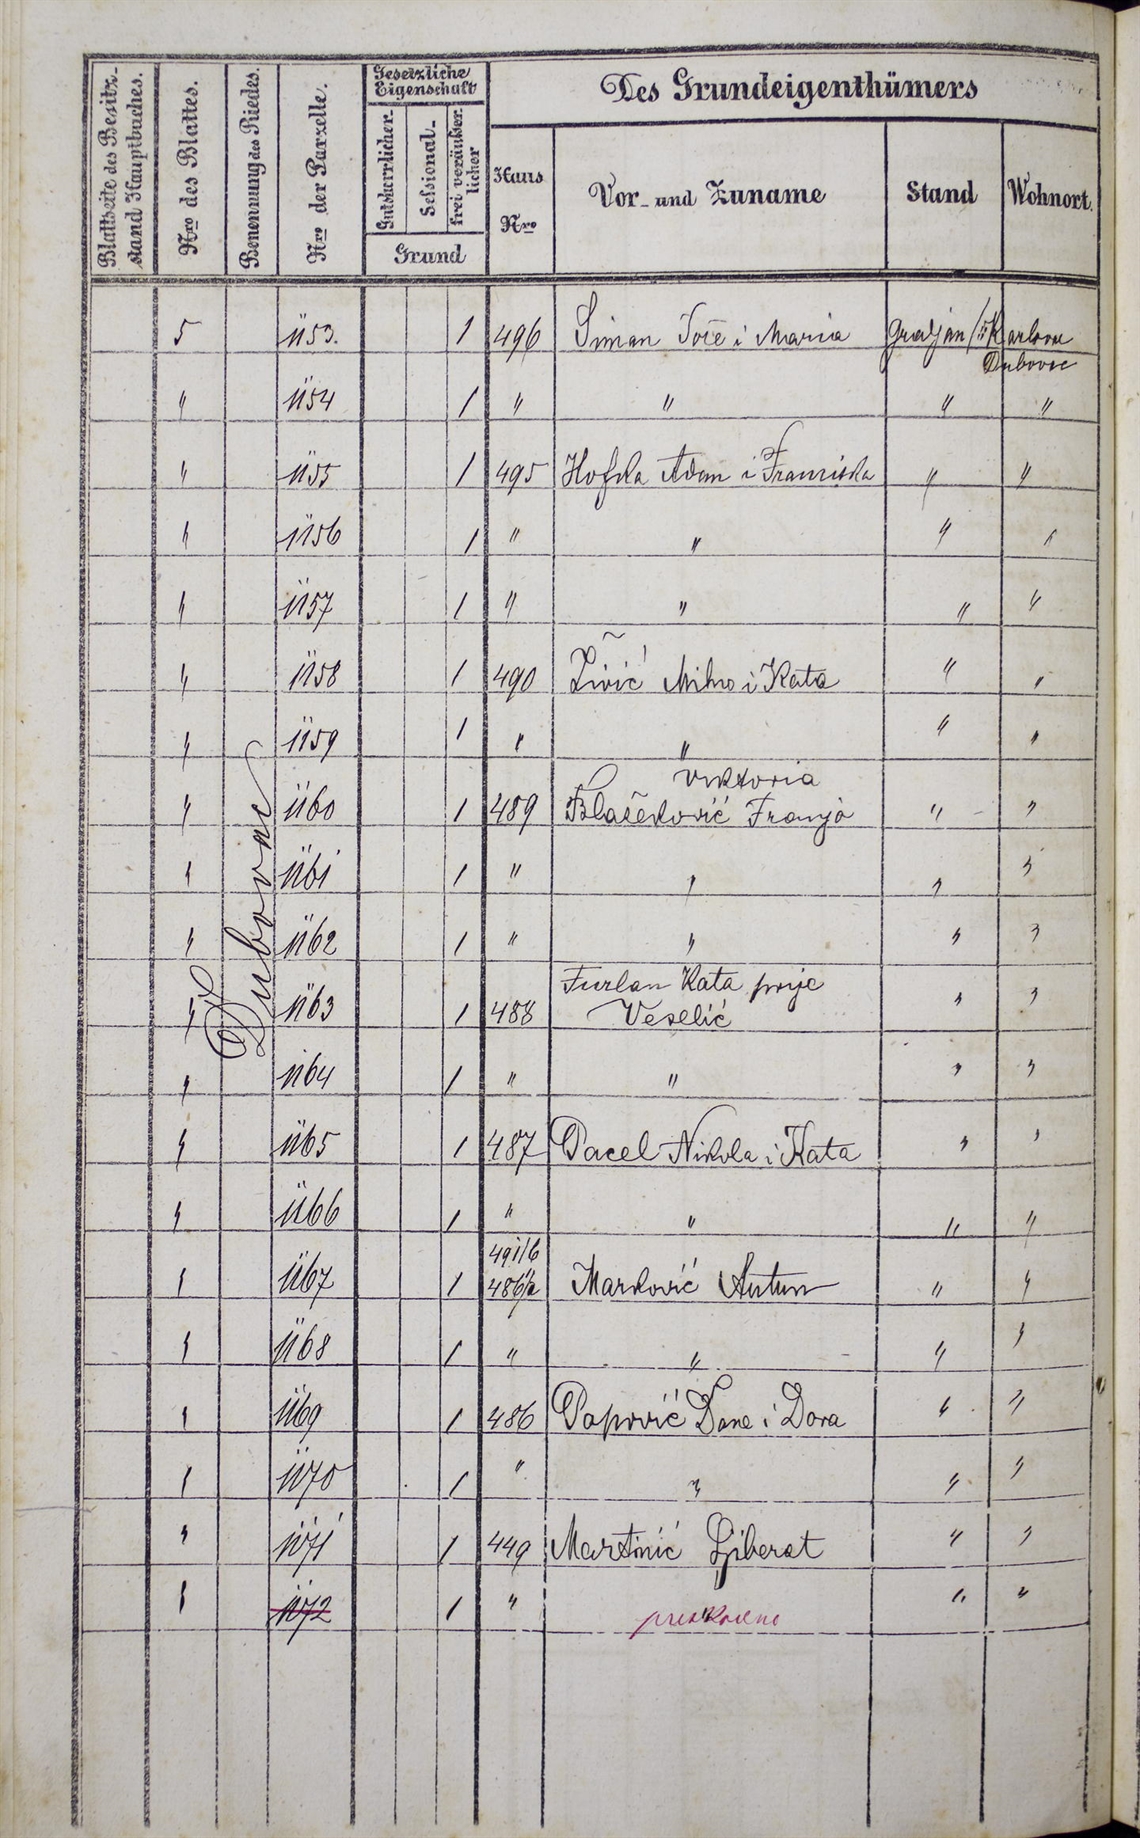 Blattseite des Besitz-
stand Hauptbuches.
Nro des Blattes.
Benennung des Riedes.
Nro der Parzelle.
Gesetzliche
Eigenschaft
Gutsherrlicher.
Sessional-
frei veräußer
licher
Grund
Des Grundeigenthümers
Haus
Nro
Vor- und Zuname
Stand
Wohnort.
Dubovac
5 1153. 1 496 Siman Jože i Maria Gradjan Karlovac
Dubovac
" 1154 1 " " " "
" 1155 1 495 Hofka Adam i Franciska " "
" 1156 1 " " " "
" 1157 1 " " " "
" 1158 1 490 Živić Miho i Kata " "
" 1159 1 " " " "
Viktoria
" 1160 1 489 Blašković Franjo " "
" 1161 1 " " " "
" 1162 1 " " " "
Furlan Kata prije
" 1163 1 488 Veselić " "
" 1164 1 " " " "
" 1165 1 487 Pacel Nikola i Kata " "
" 1166 1 " " " "
491/b
" 1167 1 486/a Marković Antun " "
" 1168 1 " " " "
" 1169 1 486 Popović Dane i Dora " "
" 1170 1 " " " "
" 1171 1 449 Martinić Ljiberat " "
" 1172 1 " " "